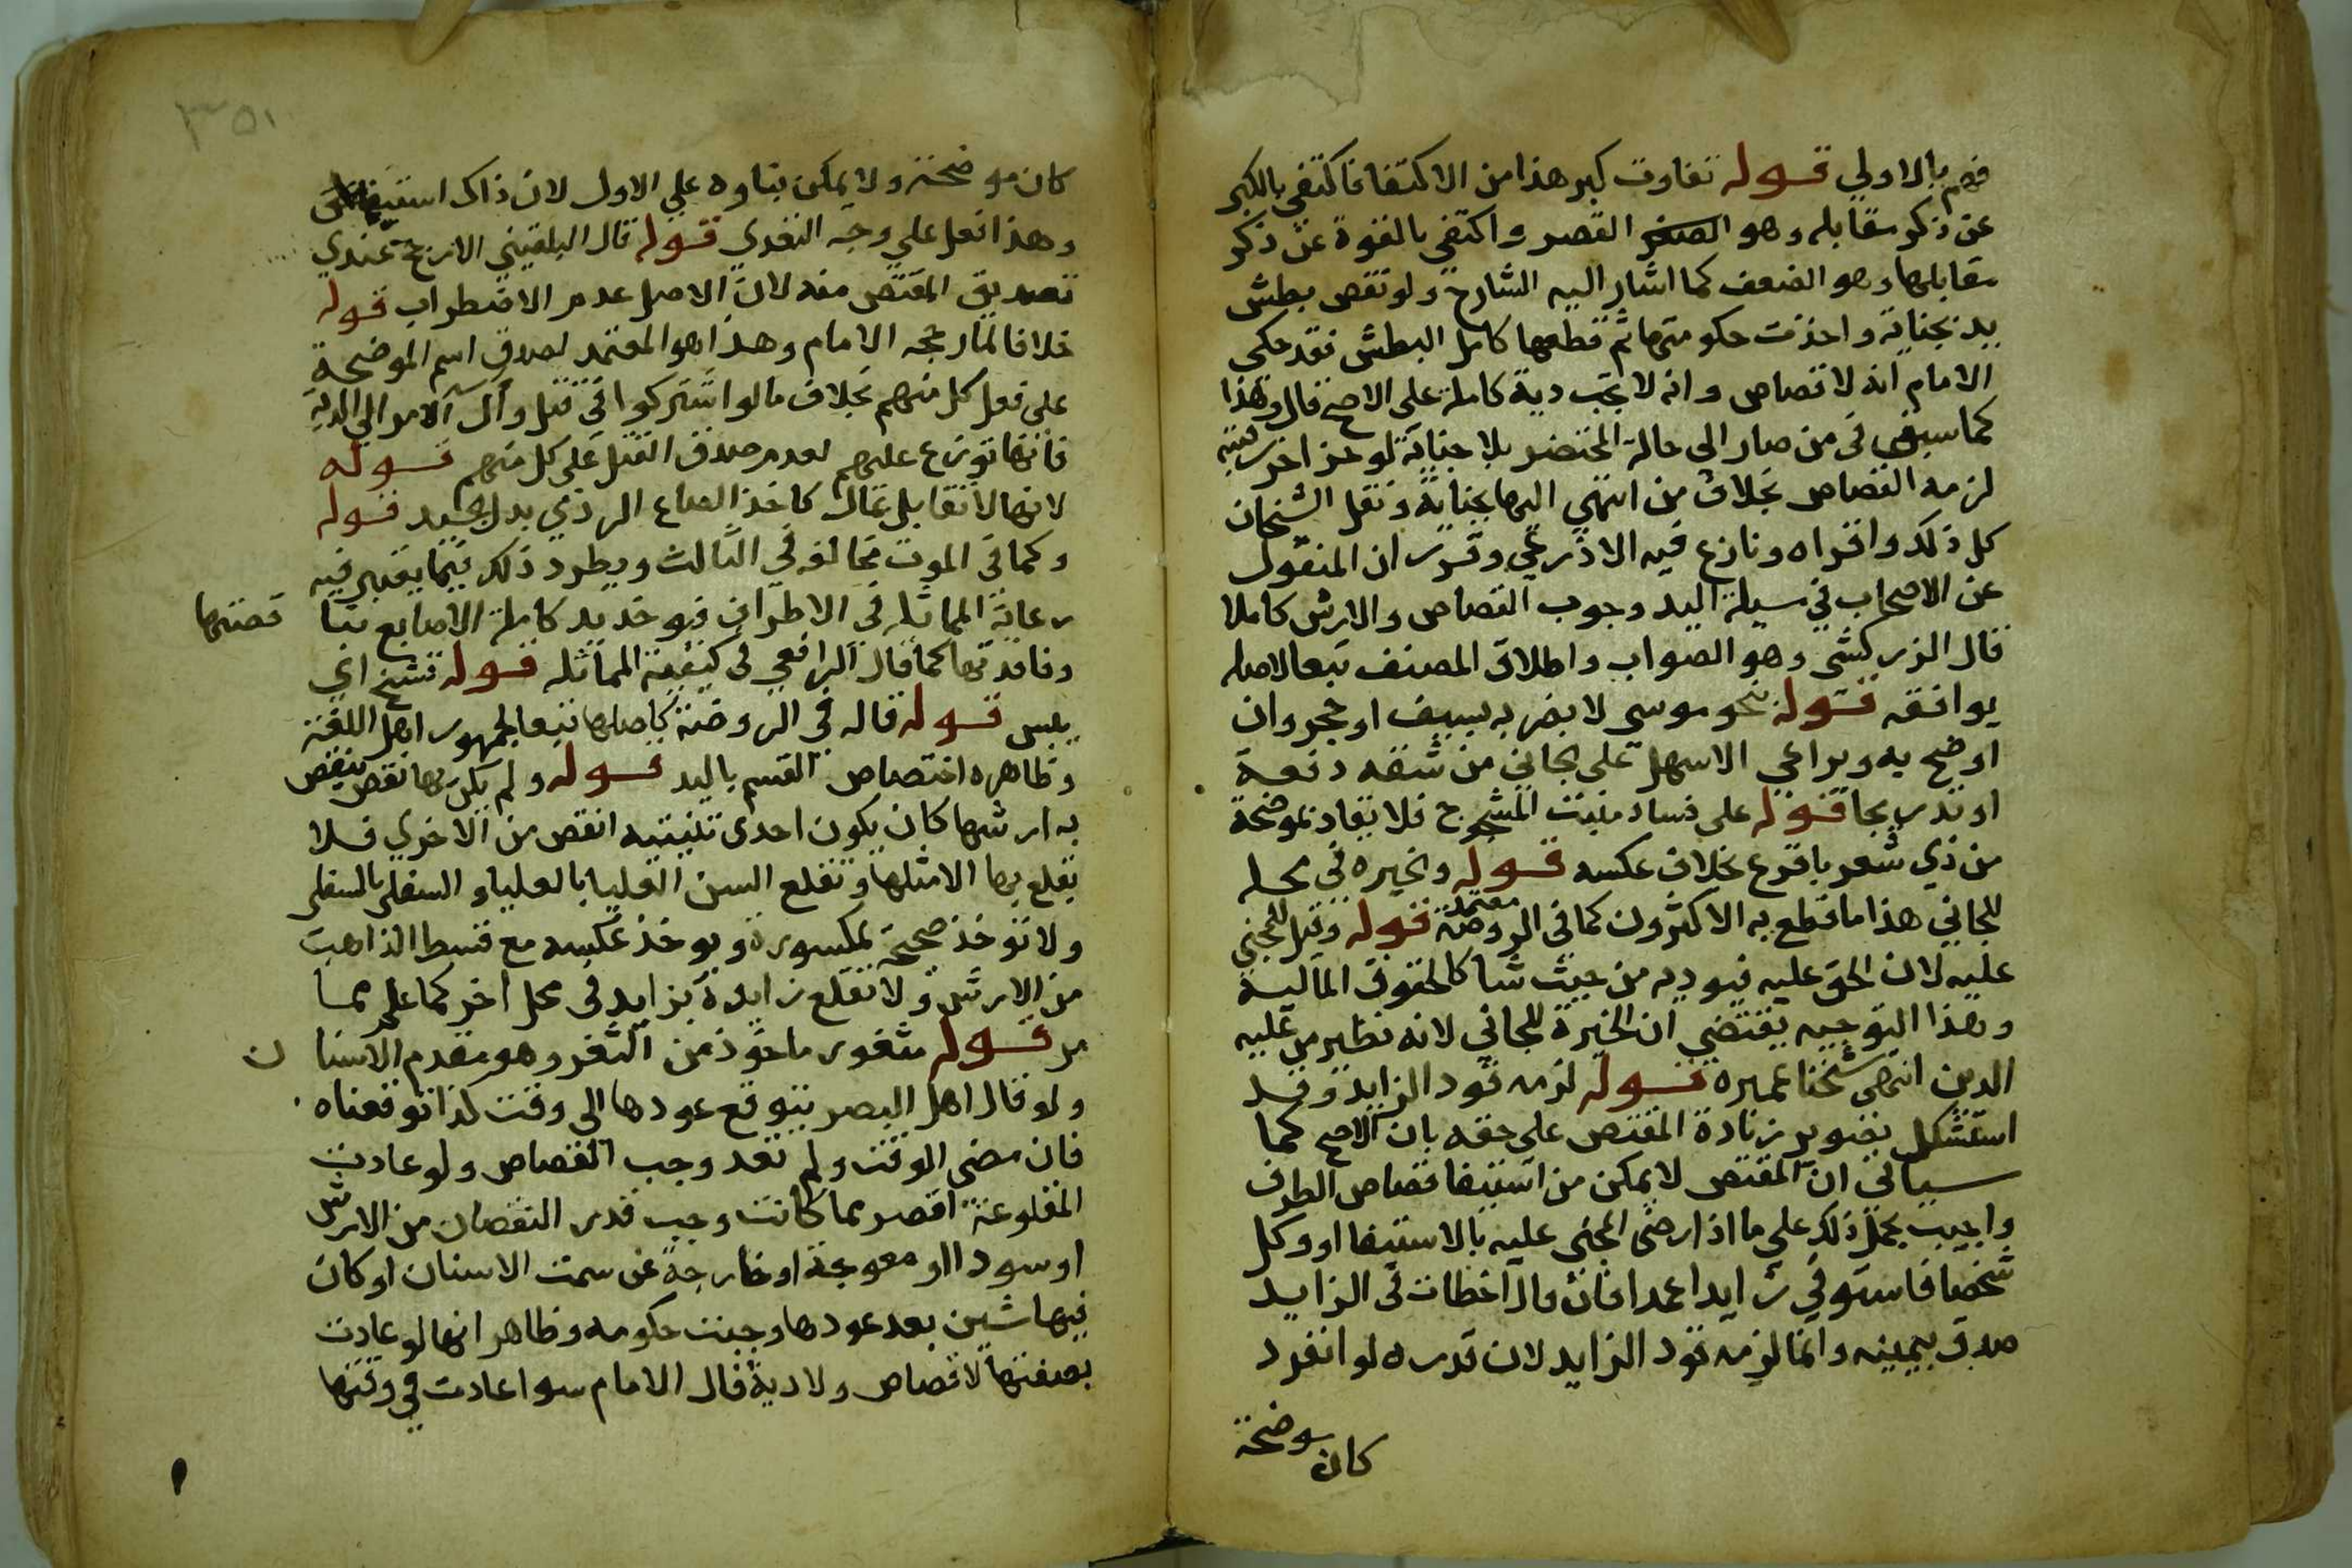 فهم بالاولي قوله تفاوت كبر هذا من الاكتفا فاكتفي بالكبر
عن ذكر مقابله وهو الصغر القصر واكتفي بالقوة عن ذكر
مقابلها وهو الضعف كما اشار اليه الشارح ولو نقص بطش
يد بجناية واخذت حكومتها ثم قطعها كامل البطش فقد حكى
الامام انه لا قصاص وانه لا تجب دية كاملة على الاصح قال وهذا
كما سبق في من صار الى حالة المحتضر بلا جناية لو حز اخر رقبته
لزمه القصاص بخلاف من انتهي اليها بجناية ونقل الشيخان
كل ذلك واقراه ونازع فيه الاذرعي وقرر ان المنقول
عن الاصحاب في سيلة اليد وجوب القصاص والارش كاملا
قال الزركشي وهو الصواب واطلاق المصنف تبعا لاصله
يوافقه قوله نحو موسى لا بضربه بسيف او حجر وان
اوضح به ويراعي الاسهل على الجاني من شقه دفعة
او تدريجا قوله على فساد منبت المشجوج فلا يقاد موضحة
من ذي شعر باقرع بخلاف عكسه قوله وخيره في محله
للجاني هذا ما قطع به الاكثرون كما في الروضة معتمد قوله وقيل للمجني
عليه لان الحق عليه فيوديه من حيث شا كالحقوق المالية
وهذا التوجيه يقتضي ان الخيرة للجاني لانه نظير من عليه
الدين انتهى شيخنا عميره قوله لزمه قود الزايد وقد
استشكل بتصوير زيادة المقتص على حقه بان الاصح كما
سياتي ان المقتص لا يمكن من استيفا قصاص الطرف
واجيب بحمل ذلك على ما اذا رضى المجني عليه بالاستيفا او وكل
شخصا فاستوفي زايدا عمدا فان قال اخطات في الزايد
صدق بيمينه وانما لزمه قود الزايد لان قدره لو انفرد
كان موضحة
٣٥١
كان موضحة ولا يمكن بناوه علي الاول لان ذاك استيفا حق
وهذا فعل على وجه التعدي قوله قال البلقيني الارجح عندي
تصديق المقتص منه لان الاصل عدم الاضطراب قوله
خلافا لما رجحه الامام وهذا هو المعتمد لصدق اسم الموضحة
على فعل كل منهم بخلاف ما لو اشتركوا في قتل وآل الامر الي الدية
فانها توزع عليهم لعدم صدق القتل على كل منهم قوله
لانها لا تقابل بمال كاخذ الصاع الردي بدل الجيد قوله
وكما في الموت مخالفه في الثالث ويطرد ذلك فيما يعتبر فيه
رعاية المماثلة في الاطراف فيوخذ يد كاملة الاصابع بنا قصتها
وفاقدتها كما قال الرافعي في كيفية المماثله قوله تشنج اي
يبس قوله قاله في الروضة كاصلها تبعا لجمهور اهل اللغة
وظاهره اختصاص القسم باليد قوله ولم يكن بها نقص ينقص
به ارشها كان يكون احدى ثنيتيه انقص من الاخري فلا
يقلع بها الا مثلها وتقلع السن العليا بالعليا والسفلي بالسفلي
ولا توخذ صحيحة بمكسورة ويوخذ عكسه مع قسط الذاهب
من الارش ولا تقلع زايدة بزايد في محل اخر كما علم مما
مر قوله مثغور ماخوذ من الثغر وهو مقدم الاسنا ن
ولو قال اهل البصر يتوقع عودها الي وقت كذا توقعناه
فان مضى الوقت ولم تعد وجب القصاص ولو عادت
المقلوعة اقصر مما كانت وجب قدر النقصان من الارش
او سودا او معوجة او خارجة عن سمت الاسنان او كان
فيها شين بعد عودها وجبت حكومه وظاهر انها لو عادت
بصفتها لا قصاص ولا دية قال الامام سوا عادت في وقتها